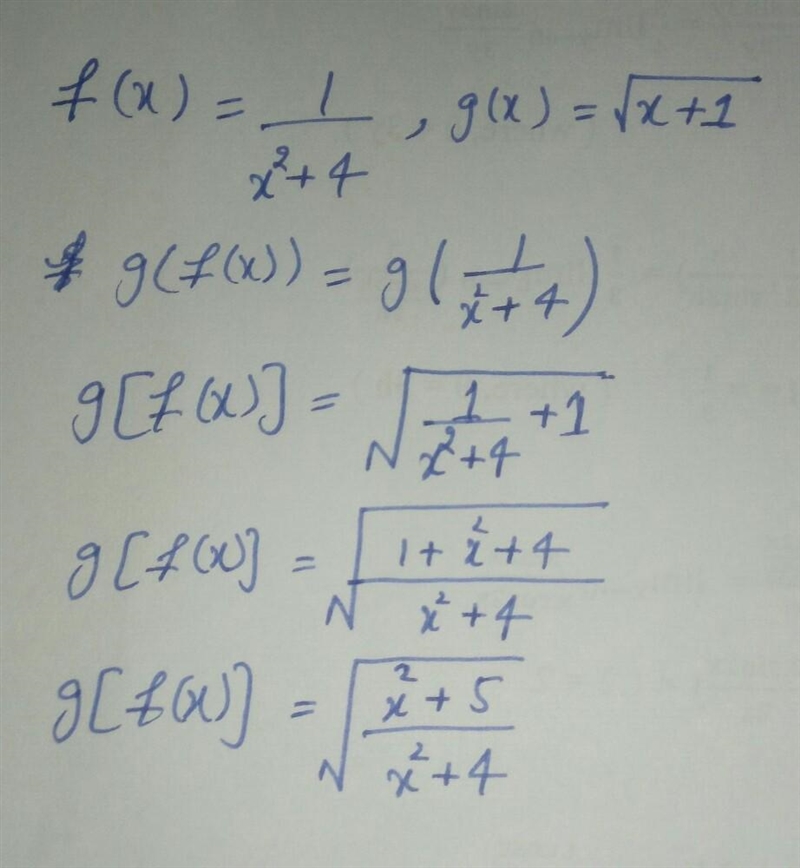 f(x) = 1/(x²+4) , g(x) = √(x+1)
g(f(x)) = g(1/(x²+4))
g[f(x)] = √(1/(x²+4) +1)
g[f(x] = √((1+x²+4)/(x²+4))
g[f(x)] = √((x²+5)/(x²+4))